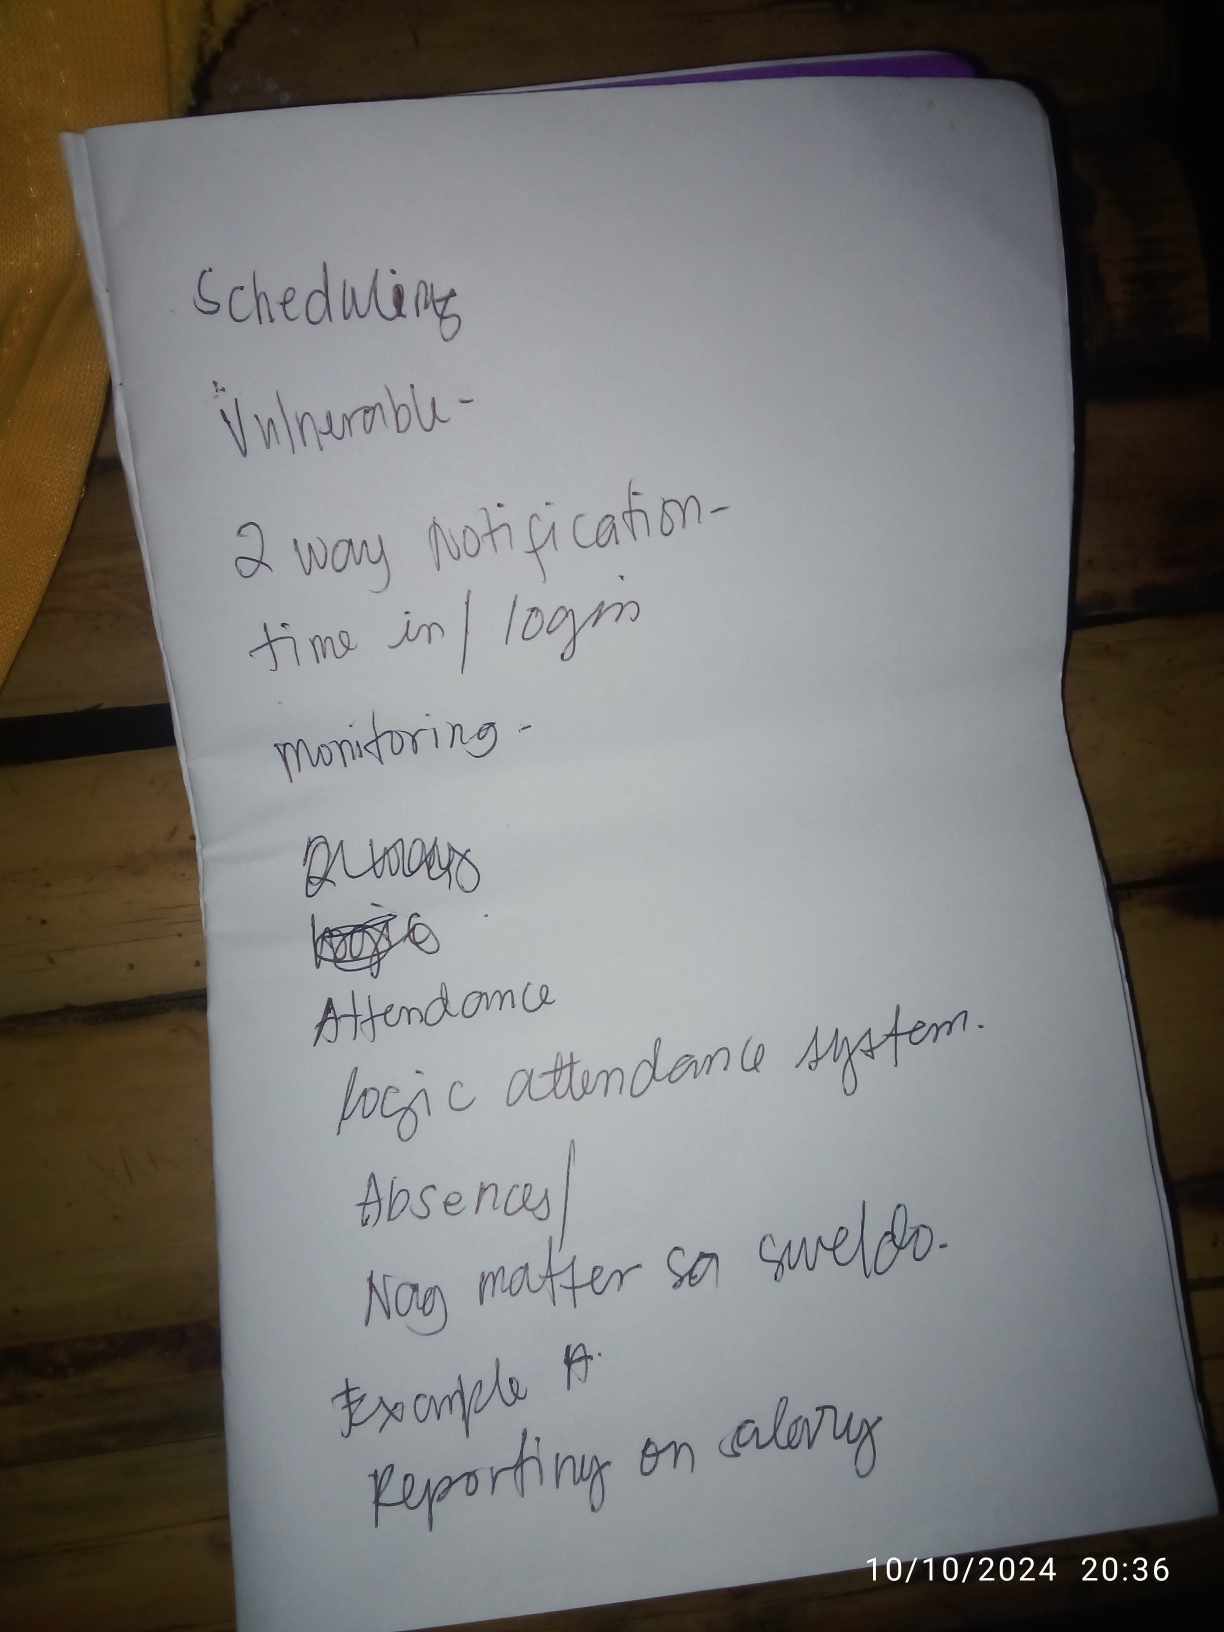 Scheduling
Vulnerable-
2 way Notification-
time in/ login
monitoring-
2 ways
logic
Attendance
logic attendance system.
Absences/
Nag matter sa sweldo.
Example A.
Reporting on salary
10/10/2024 20:36